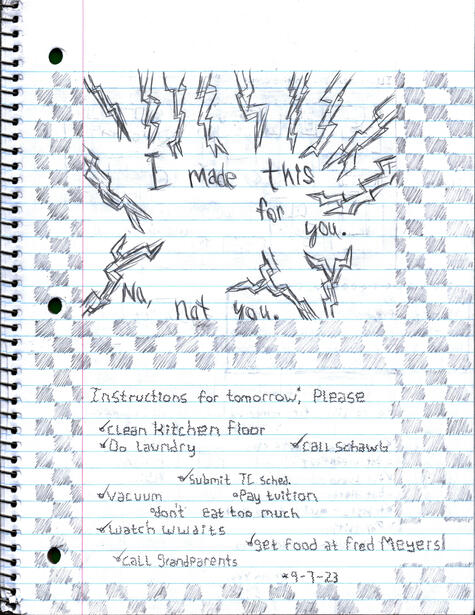 I made this
for
you.
No, not you.
Instructions for tomorrow*, Please
✓Clean Kitchen Floor
✓Do laundry ✓Call Schawb
✓Submit TC sched.
✓Vacuum °Pay tuition
°don't eat too much
✓Watch WWDITS
✓get food at Fred Meyers!
✓Call grandparents
*9-7-23